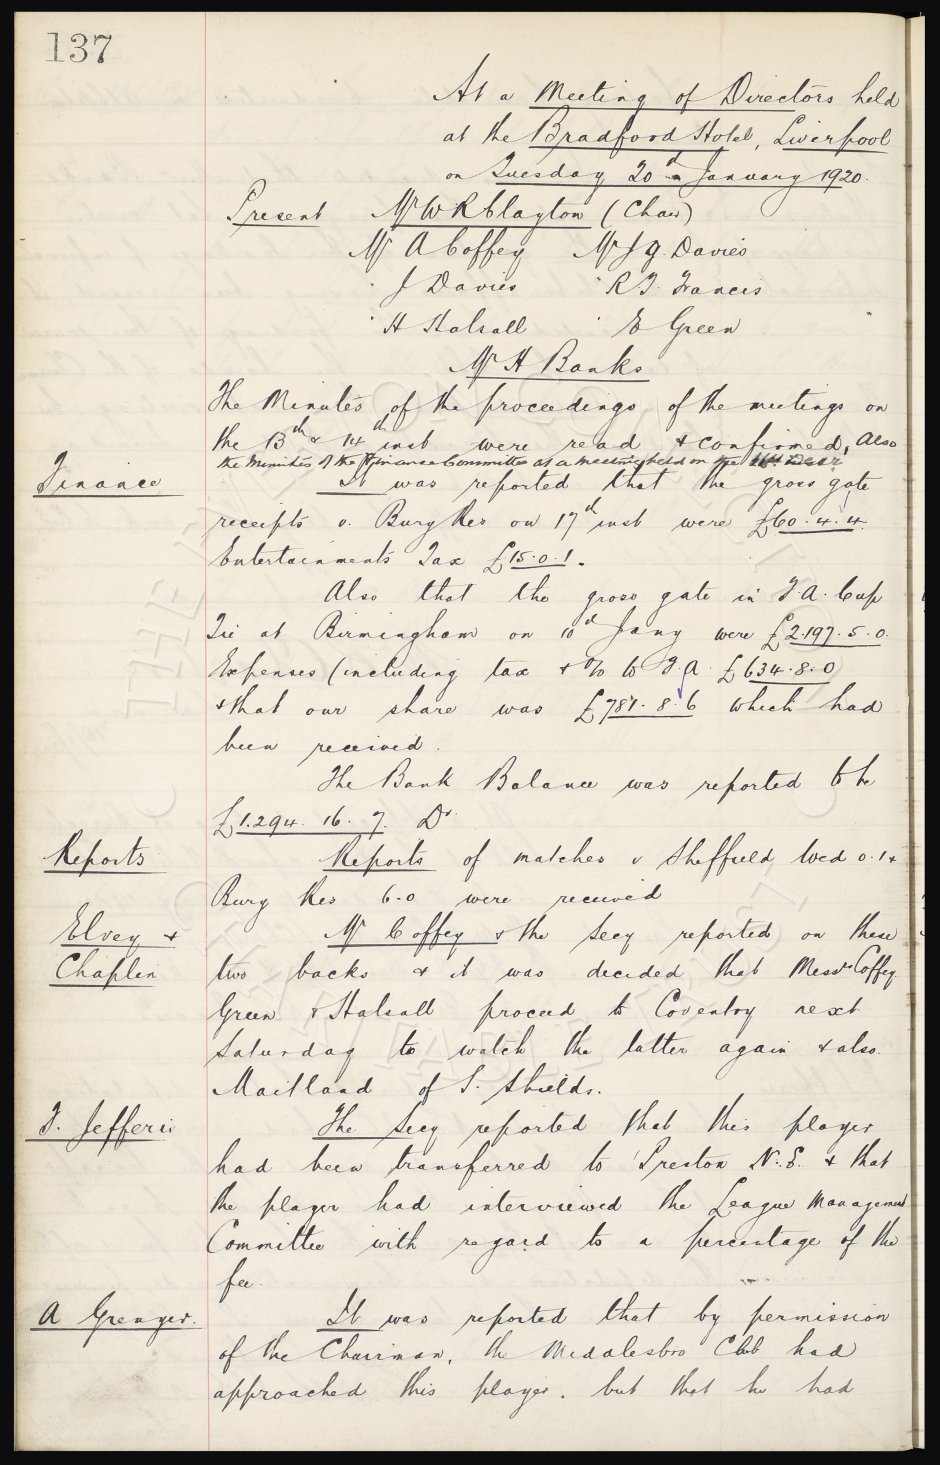 137
At a Meeting of Directors held
at the Bradford Hotel, Liverpool
on Tuesday 20th January 1920.
Present Mr W R Clayton (Chair)
Mr A Coffey Mr J G. Davies
" J Davies " R T. Francis
" H Halsall " E Green
Mr H Banks
The Minutes of the proceedings of the meetings on
the 13th & 14th inst were read & confirmed, Also
the Minutes of the Finance Committee at a meeting held on the
Finance It was reported that the gross gate
receipts v. Bury Res on 17th inst were £60. 4. 4.
Entertainments Tax £15. 0. 1.
Also that the gross gate in F A. Cup
Tie at Birmingham on 10th Jany were £2.197. 5. 0.
Expenses (including tax & % to F. A. £634. 8. 0)
& that our share was £781. 8. 6 which had
been received.
The Bank Balance was reported to be
£1.294. 16. 7. Dr.
Reports Reports of matches v Sheffield Wed 0.1 &
Bury Res 6.0 were received
Elvey & Mr Coffey & the Secy reported on these
Chaplin two backs & it was decided that Messrs Coffey
Green & Halsall proceed to Coventry next
Saturday to watch the latter again & also
Maitland of S. Shields.
F. Jefferis The Secy reported that this player
had been transferred to Preston N. E. & that
the player had interviewed the League Management
Committee with regard to a percentage of the
fee.
A Grenyer. It was reported that by permission
of the Chairman, the Middlesbro Club had
approached this player. but that he had